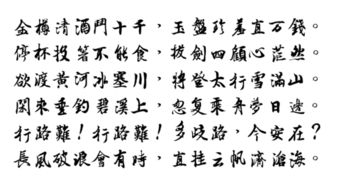 金樽清酒鬥十千，玉盤珍羞直万錢。
停杯投箸不能食，拔劍四顧心茫然。
欲渡黃河冰塞川，將登太行雪滿山。
閑來垂釣碧溪上，忽復乘舟夢日邊。
行路難！行路難！多歧路，今安在？
長風破浪會有時，直挂云帆濟滄海。